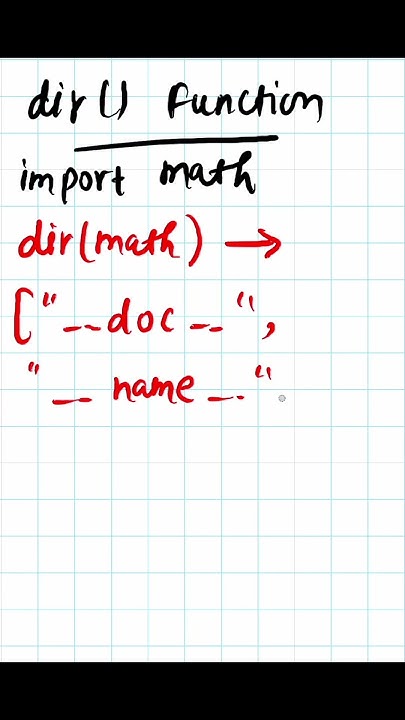 dir() function
import math
dir(math) →
["__doc__",
"__name__"